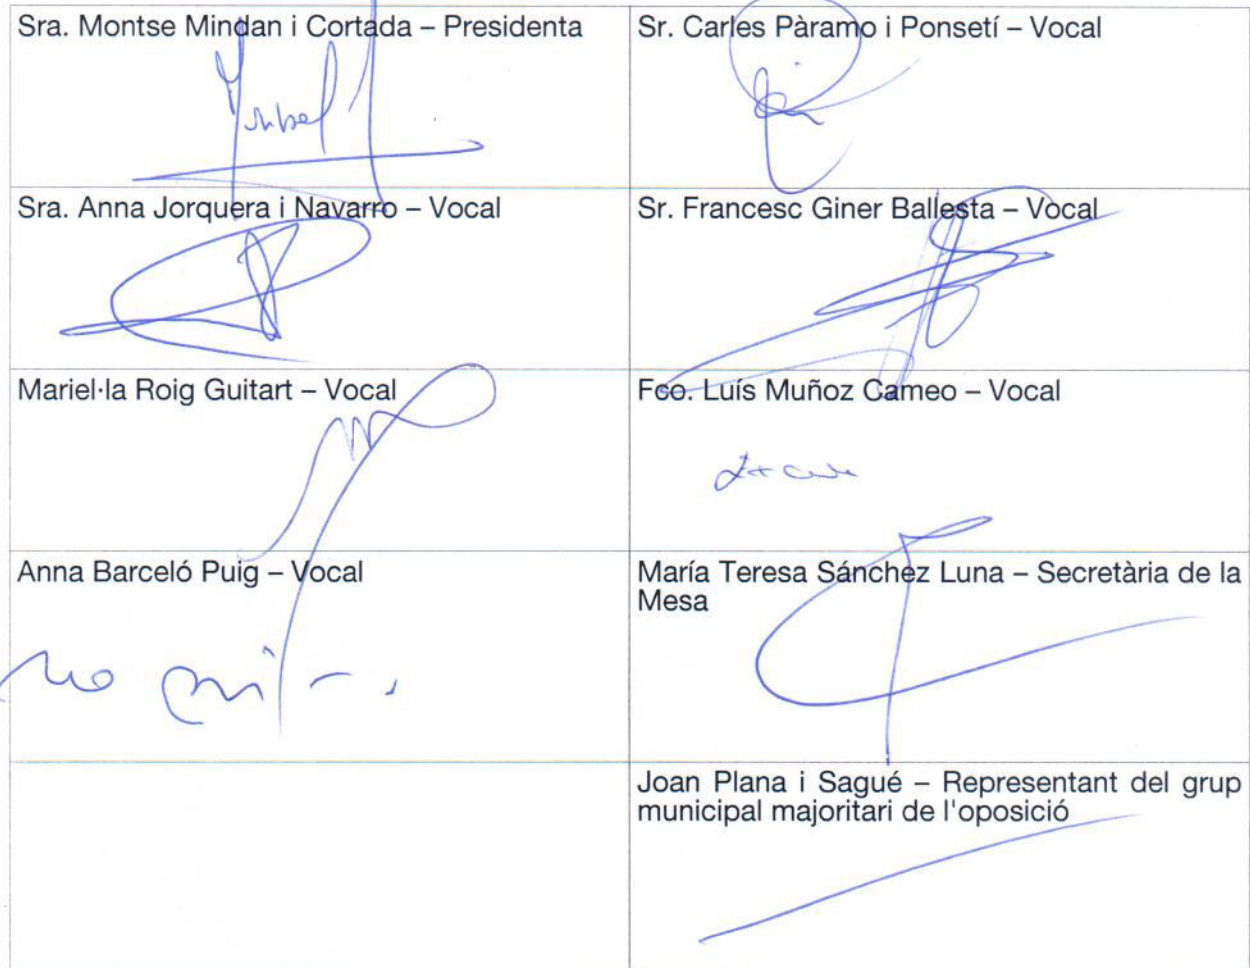 Sra. Montse Mindan i Cortada – Presidenta
Sr. Carles Pàramo i Ponsetí – Vocal
Sra. Anna Jorquera i Navarro – Vocal
Sr. Francesc Giner Ballesta – Vocal
Mariel·la Roig Guitart – Vocal
Fco. Luís Muñoz Cameo – Vocal
Anna Barceló Puig – Vocal
María Teresa Sánchez Luna – Secretària de la
Mesa
Joan Plana i Sagué – Representant del grup
municipal majoritari de l'oposició